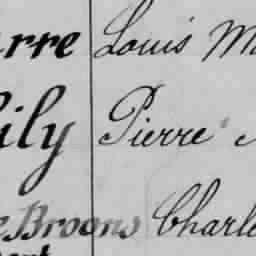 rre Louis M
ily Pierre
e Broons Charle